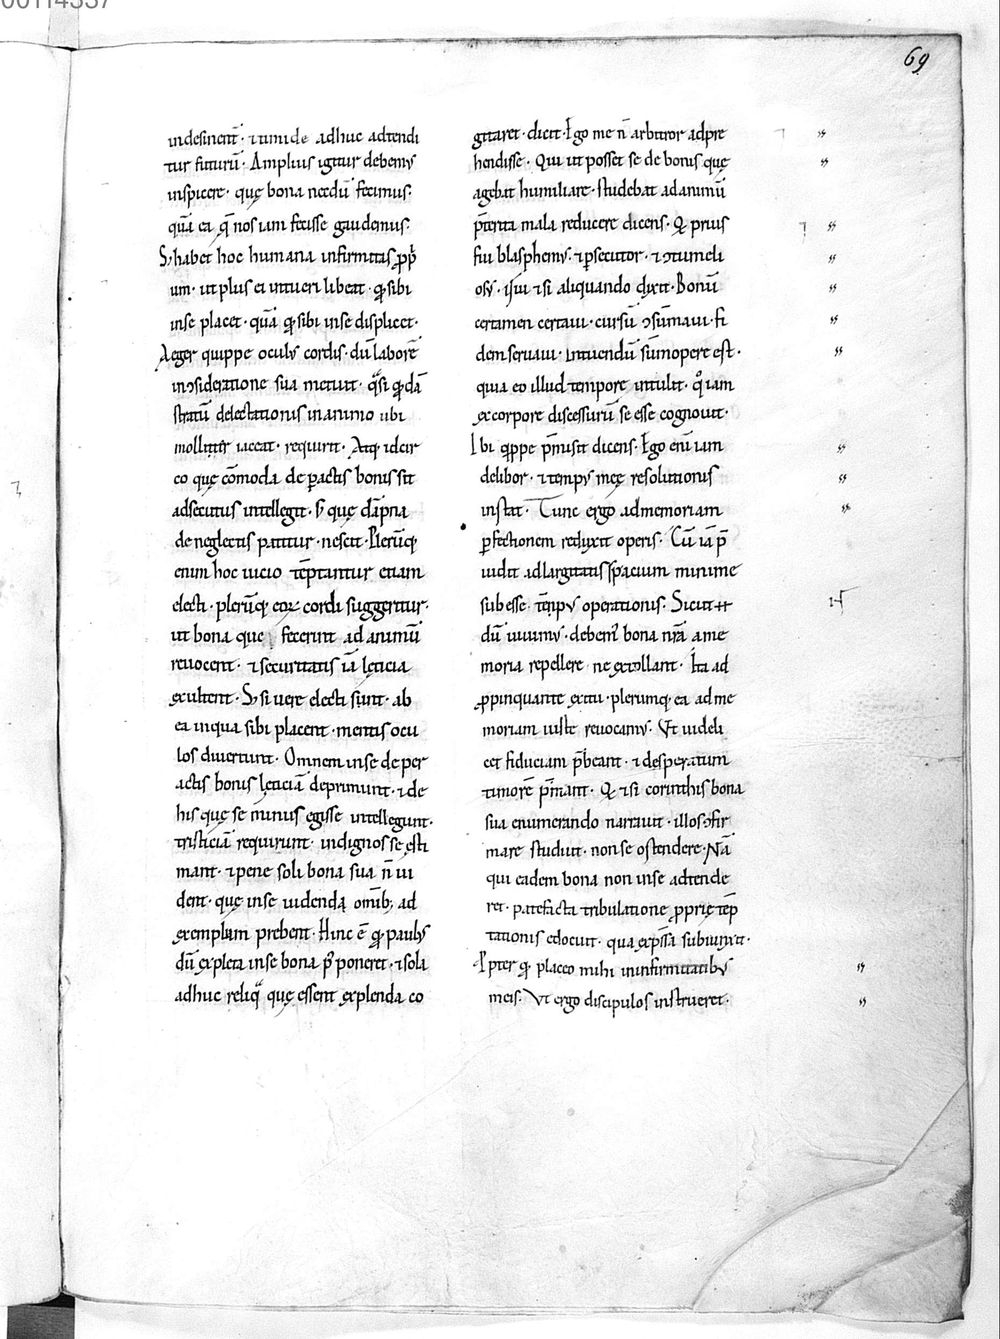 00114337
69
indesinent̄· ⁊ timide adhuc adtendi
tur futurū· Amplius igitur debemꝰ
inspicere· quę bona necdū fecimus·
quā ea q̄ nos iam fecisse gaudemus·
S; habet hoc humana infirmitas ꝓp
um· ut plus ei intueri libeat· qđ sibi
inse placet· quā qđ sibi inse displicet·
Aeger quippe oculꝰ cordis· dū laborē
inↄsideratione sua metuit· q̊si qđdā
stratū delectationis inanimo ubi
molliter iaceat· requirit· Atq; idcir
co quę cōmoda de ꝑactis bonis sit
adsecutus intellegit· s; quę dāpna
deneglectis patitur· nescit· Plerūq;
enim hoc uicio tēptantur etiam
electi· plerūq; eoꝝ cordi suggeritur·
ut bona que fecerint ad animū
reuocent· ⁊ securitatis iā lęticia
exultent· S; si uere electi sunt· ab
ea inqua sibi placent· mentis ocu
los diuertunt· Omnem inse de per
actis bonis lęticiā deprimunt· ⁊ de
his quę se minus egisse intellegunt·
tristiciā requirunt· indignos se ęsti
mant· ⁊ pene soli bona sua n̄ ui
dent· quę inse uidenda omīb; ad
exemplum prebent· Hinc ē qđ paulꝰ
dū expleta inse bona p̄poneret· ⁊ sola
adhuc reliq̊ quę essent explenda co
gitaret· dicit· Ego me n̄ arbitror adpre
hendisse· Qui ut posset se de bonis quę
agebat humiliare· studebat adanimū
p̄terita mala reducere dicens· Q̇ prius
fui blasphemꝰ· ⁊ ꝑsecutor· ⁊ ↄtumeli
osꝰ· Qui ⁊ si aliquando dixit· Bonū
certamen certaui· cursū ↄsumaui· fi
dem seruaui· Intuendū sūmopere est·
quia eo illud tempore intulit· q̊ iam
excorpore discessurū se esse cognouit·
Ibi qippe p̄misit dicens· Ego eni iam
delibor· ⁊ tempꝰ meę resolutionis
instat· Tunc ergo admemoriam
ꝑfectionem reduxit operis· Cū iā p̄
uidit adlargitatis spacium minime
subesse tēpꝰ operationis· Sicut ++
dū uiuimꝰ· debemꝰ bona nr̄a ame
moria repellere ne extollant· Ita ad
ꝓpinquante exitu· plerumq; ea adme
moriam iuste reuocamꝰ· Vt uideli
cet fiduciam p̄beant· ⁊ desperatum
timorē p̄mant· Q̇ ⁊ si corinthis bona
sua enumerando narrauit· illos ↄfir
mare studuit· non se ostendere· Nā
qui eadem bona non inse adtende
ret· patefacta tribulatione ꝓprię tēp
tationis edocuit· qua exp̄ssa subiunxit·
Ꝓpter qđ placeo mihi ininfirmitatibꝰ
meis· Vt ergo discipulos instrueret·